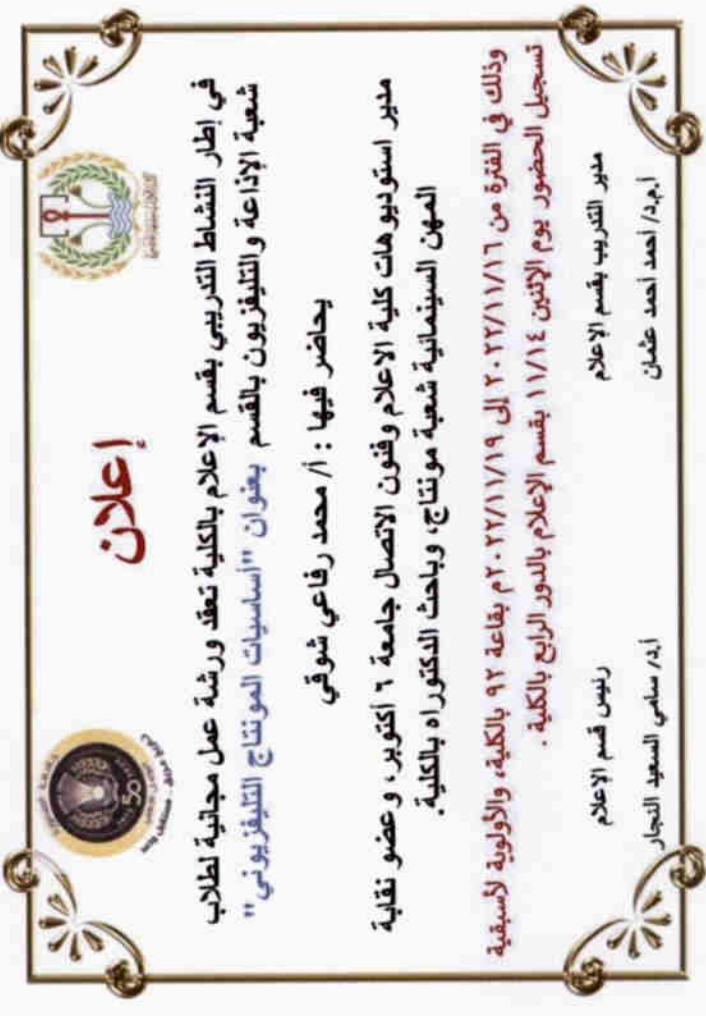 إعلان
في إطار النشاط التدريبي بقسم الإعلام بالكلية تعقد ورشة عمل مجانية لطلاب
شعبة الإذاعة والتليفزيون بالقسم بعنوان "أساسيات المونتاج التليفزيوني"
يحاضر فيها : أ/ محمد رفاعي شوقي
مدير استوديوهات كلية الاعلام وفنون الاتصال جامعة ٦ أكتوبر، وعضو نقابة
المهن السينمائية شعبة مونتاج، وباحث الدكتوراه بالكلية.
وذلك في الفترة من ٢٠٢٢/١١/١٦ إلى ٢٠٢٢/١١/١٩م بقاعة ٩٢ بالكلية، والأولوية لأسبقية
تسجيل الحضور يوم الإثنين ١١/١٤ بقسم الإعلام بالدور الرابع بالكلية .
مدير التدريب بقسم الإعلام
رئيس قسم الإعلام
أ.م.د/ أحمد أحمد عثمان
أ.د/ سامي السعيد النجار
50